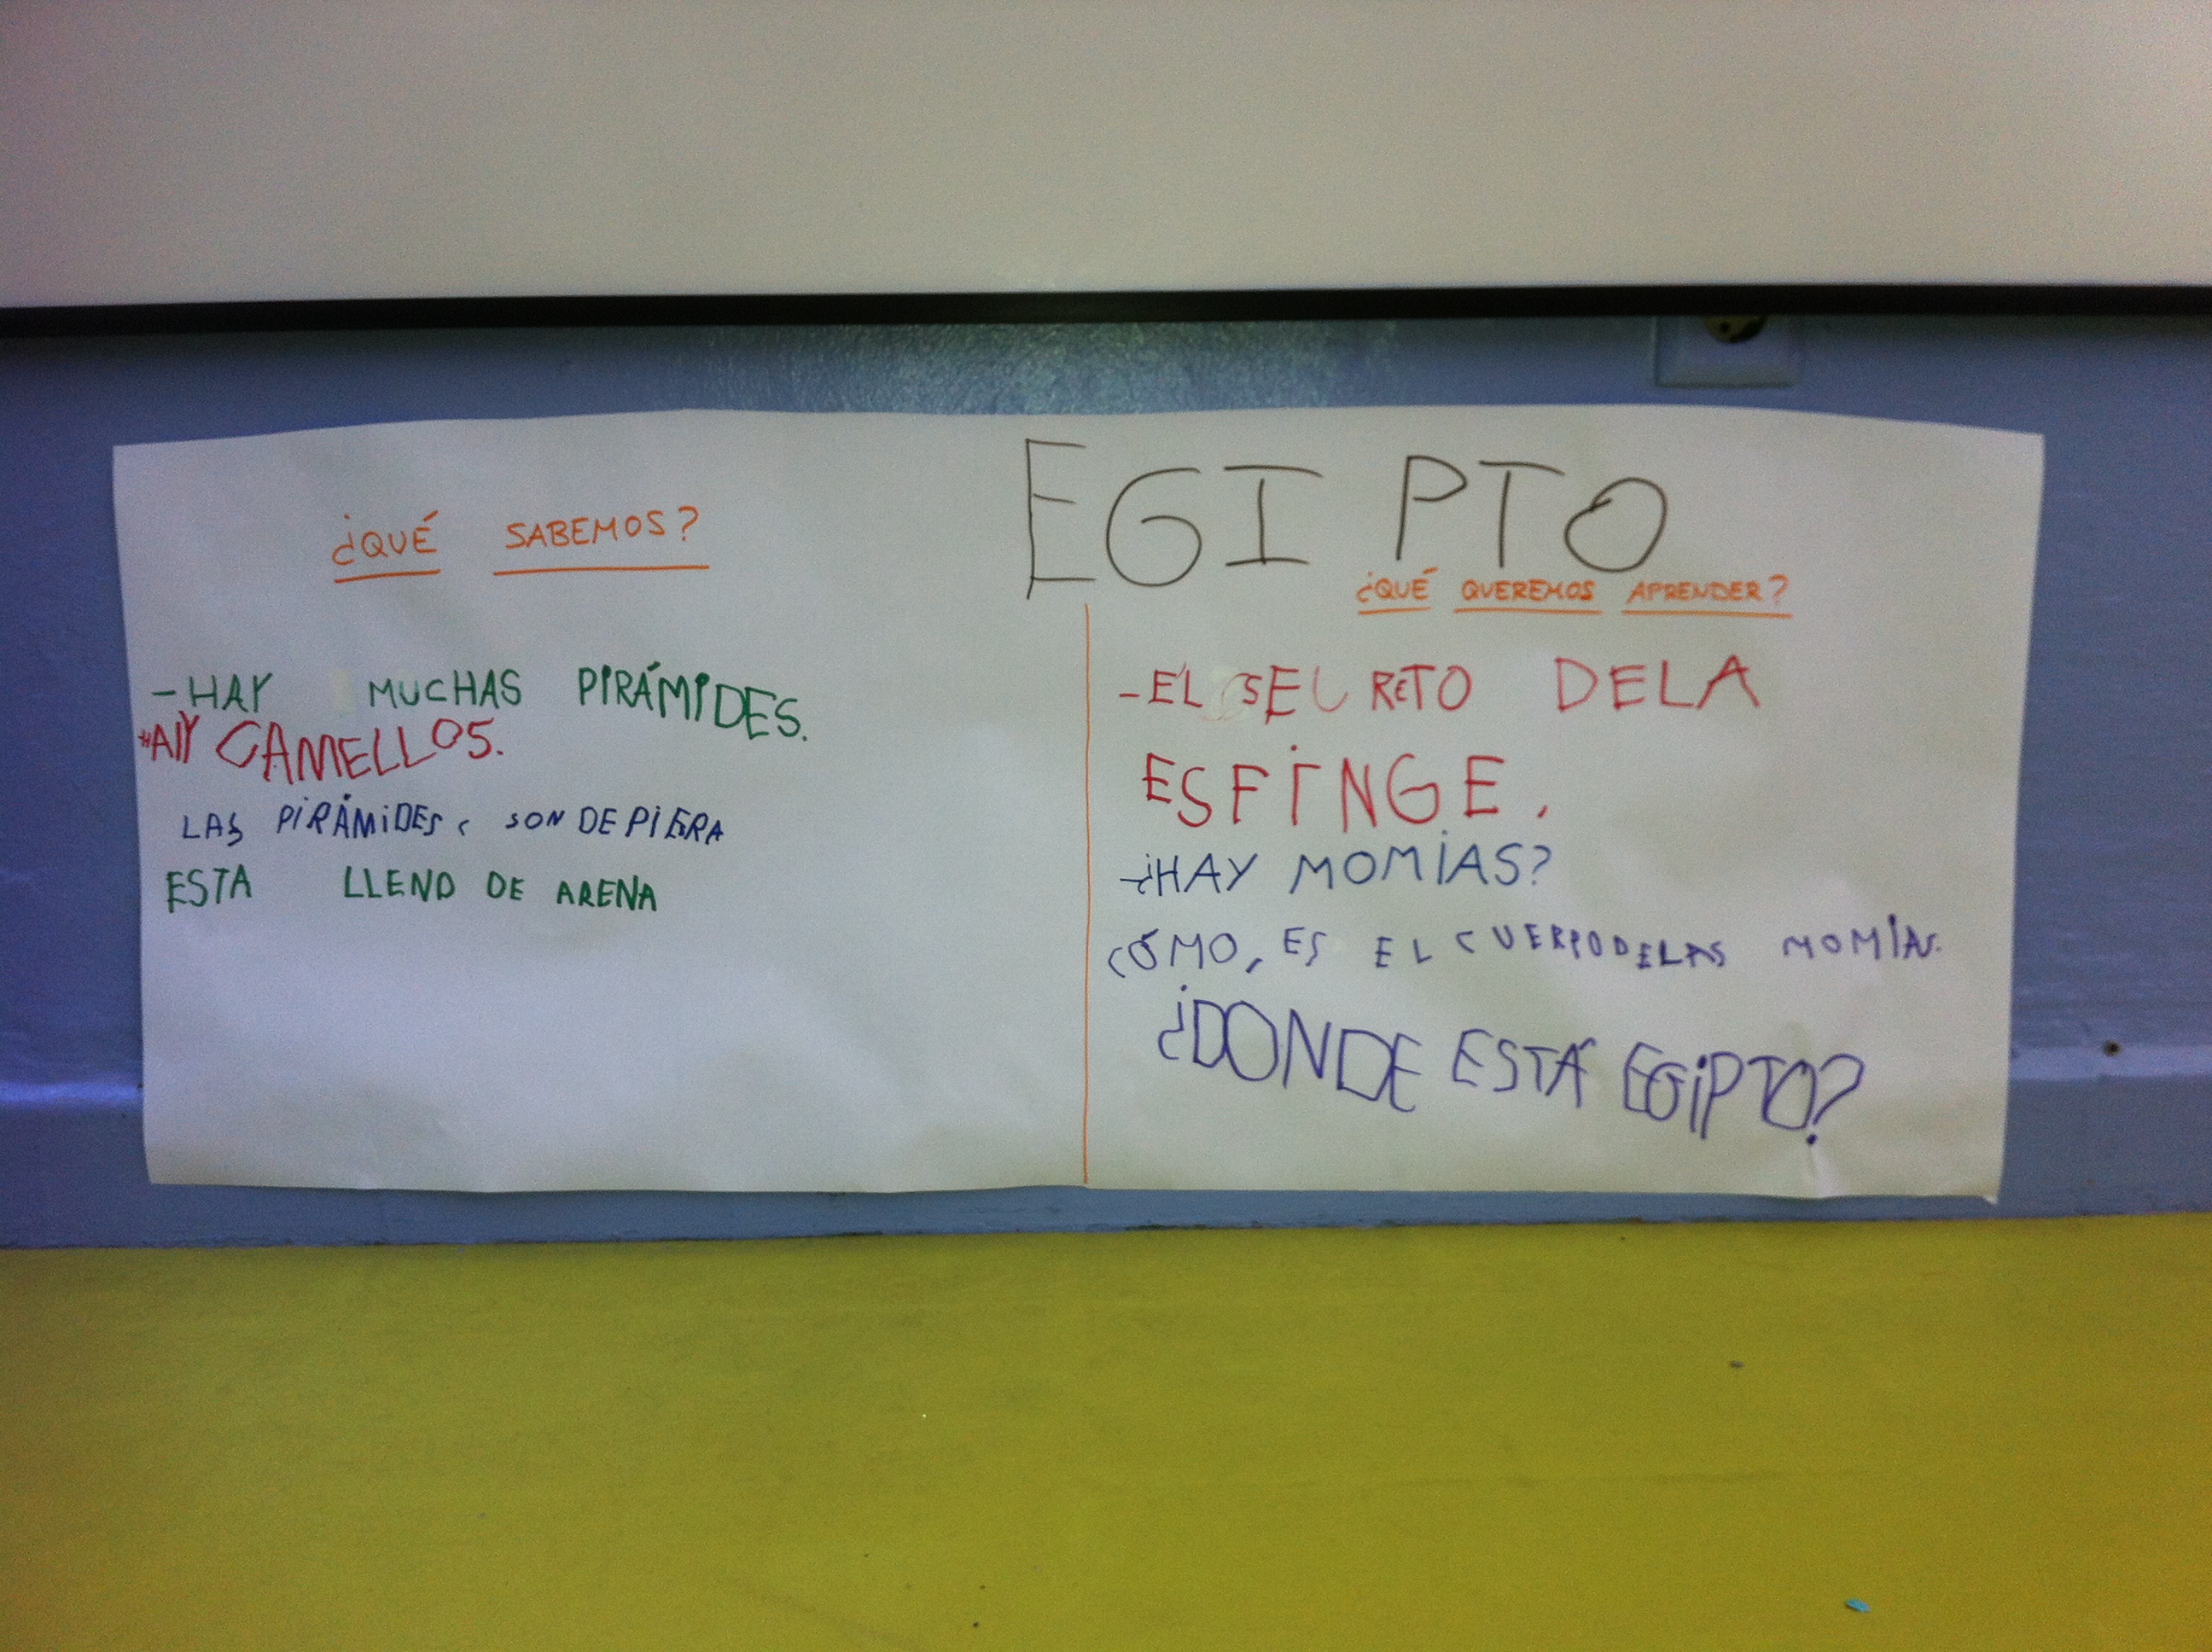 EGIPTO
¿QUÉ SABEMOS?
-HAY MUCHAS PIRÁMIDES.
HAY CAMELLOS.
LAS PIRÁMIDES SON DE PIERA
ESTA LLENO DE ARENA
¿QUÉ QUEREMOS APRENDER?
-EL SECRETO DELA
ESFINGE.
-¿HAY MOMIAS?
CÓMO, ES EL CUERPODELAS MOMIAS.
¿DONDE ESTÁ EGIPTO?